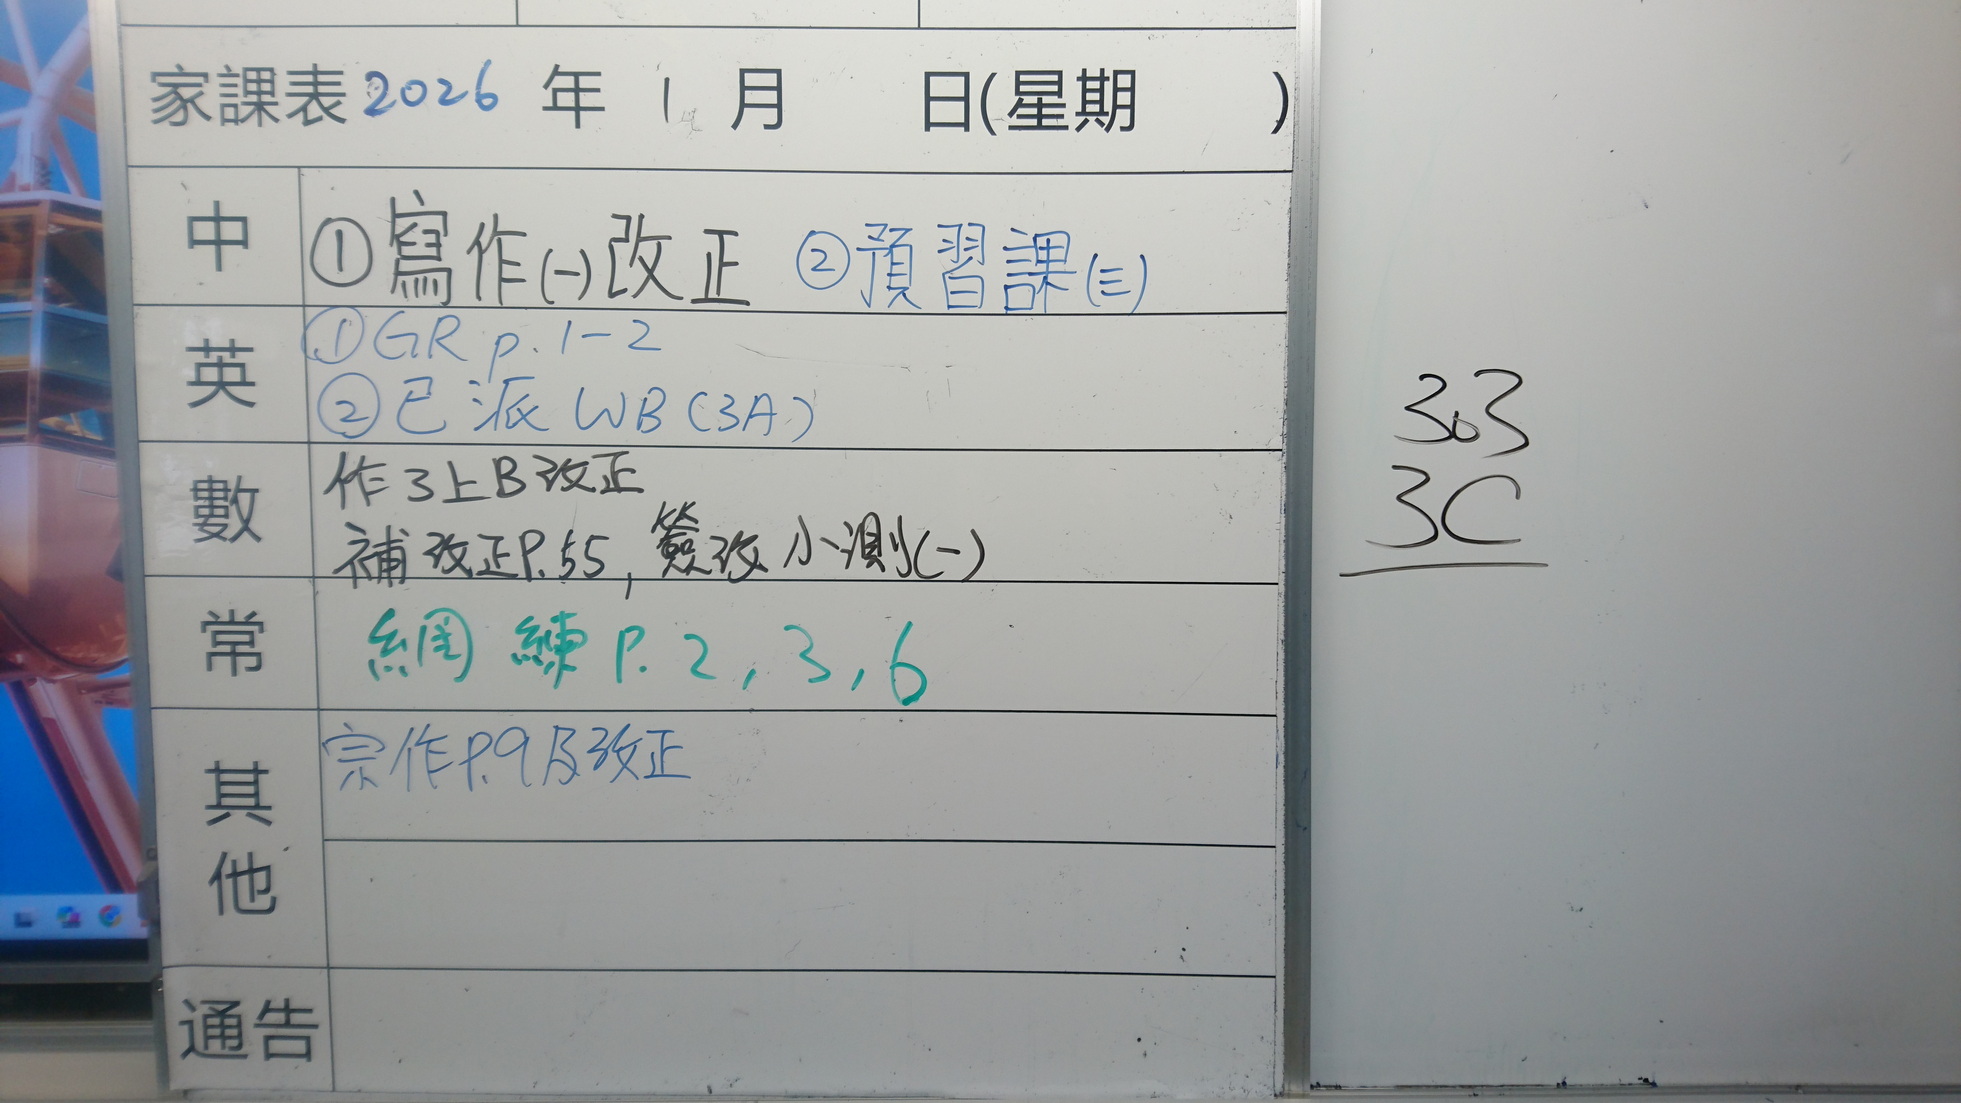 家課表 2026 年 1 月 日(星期 )
中 ①寫作(一)改正 ②預習課(三)
英 ①GR p. 1-2
②已派 WB (3A)
數 作3上B改正
補改正P.55, 簽改小測(一)
常 網練 P. 2, 3, 6
其他 宗作P.9及改正
通告
303
3C